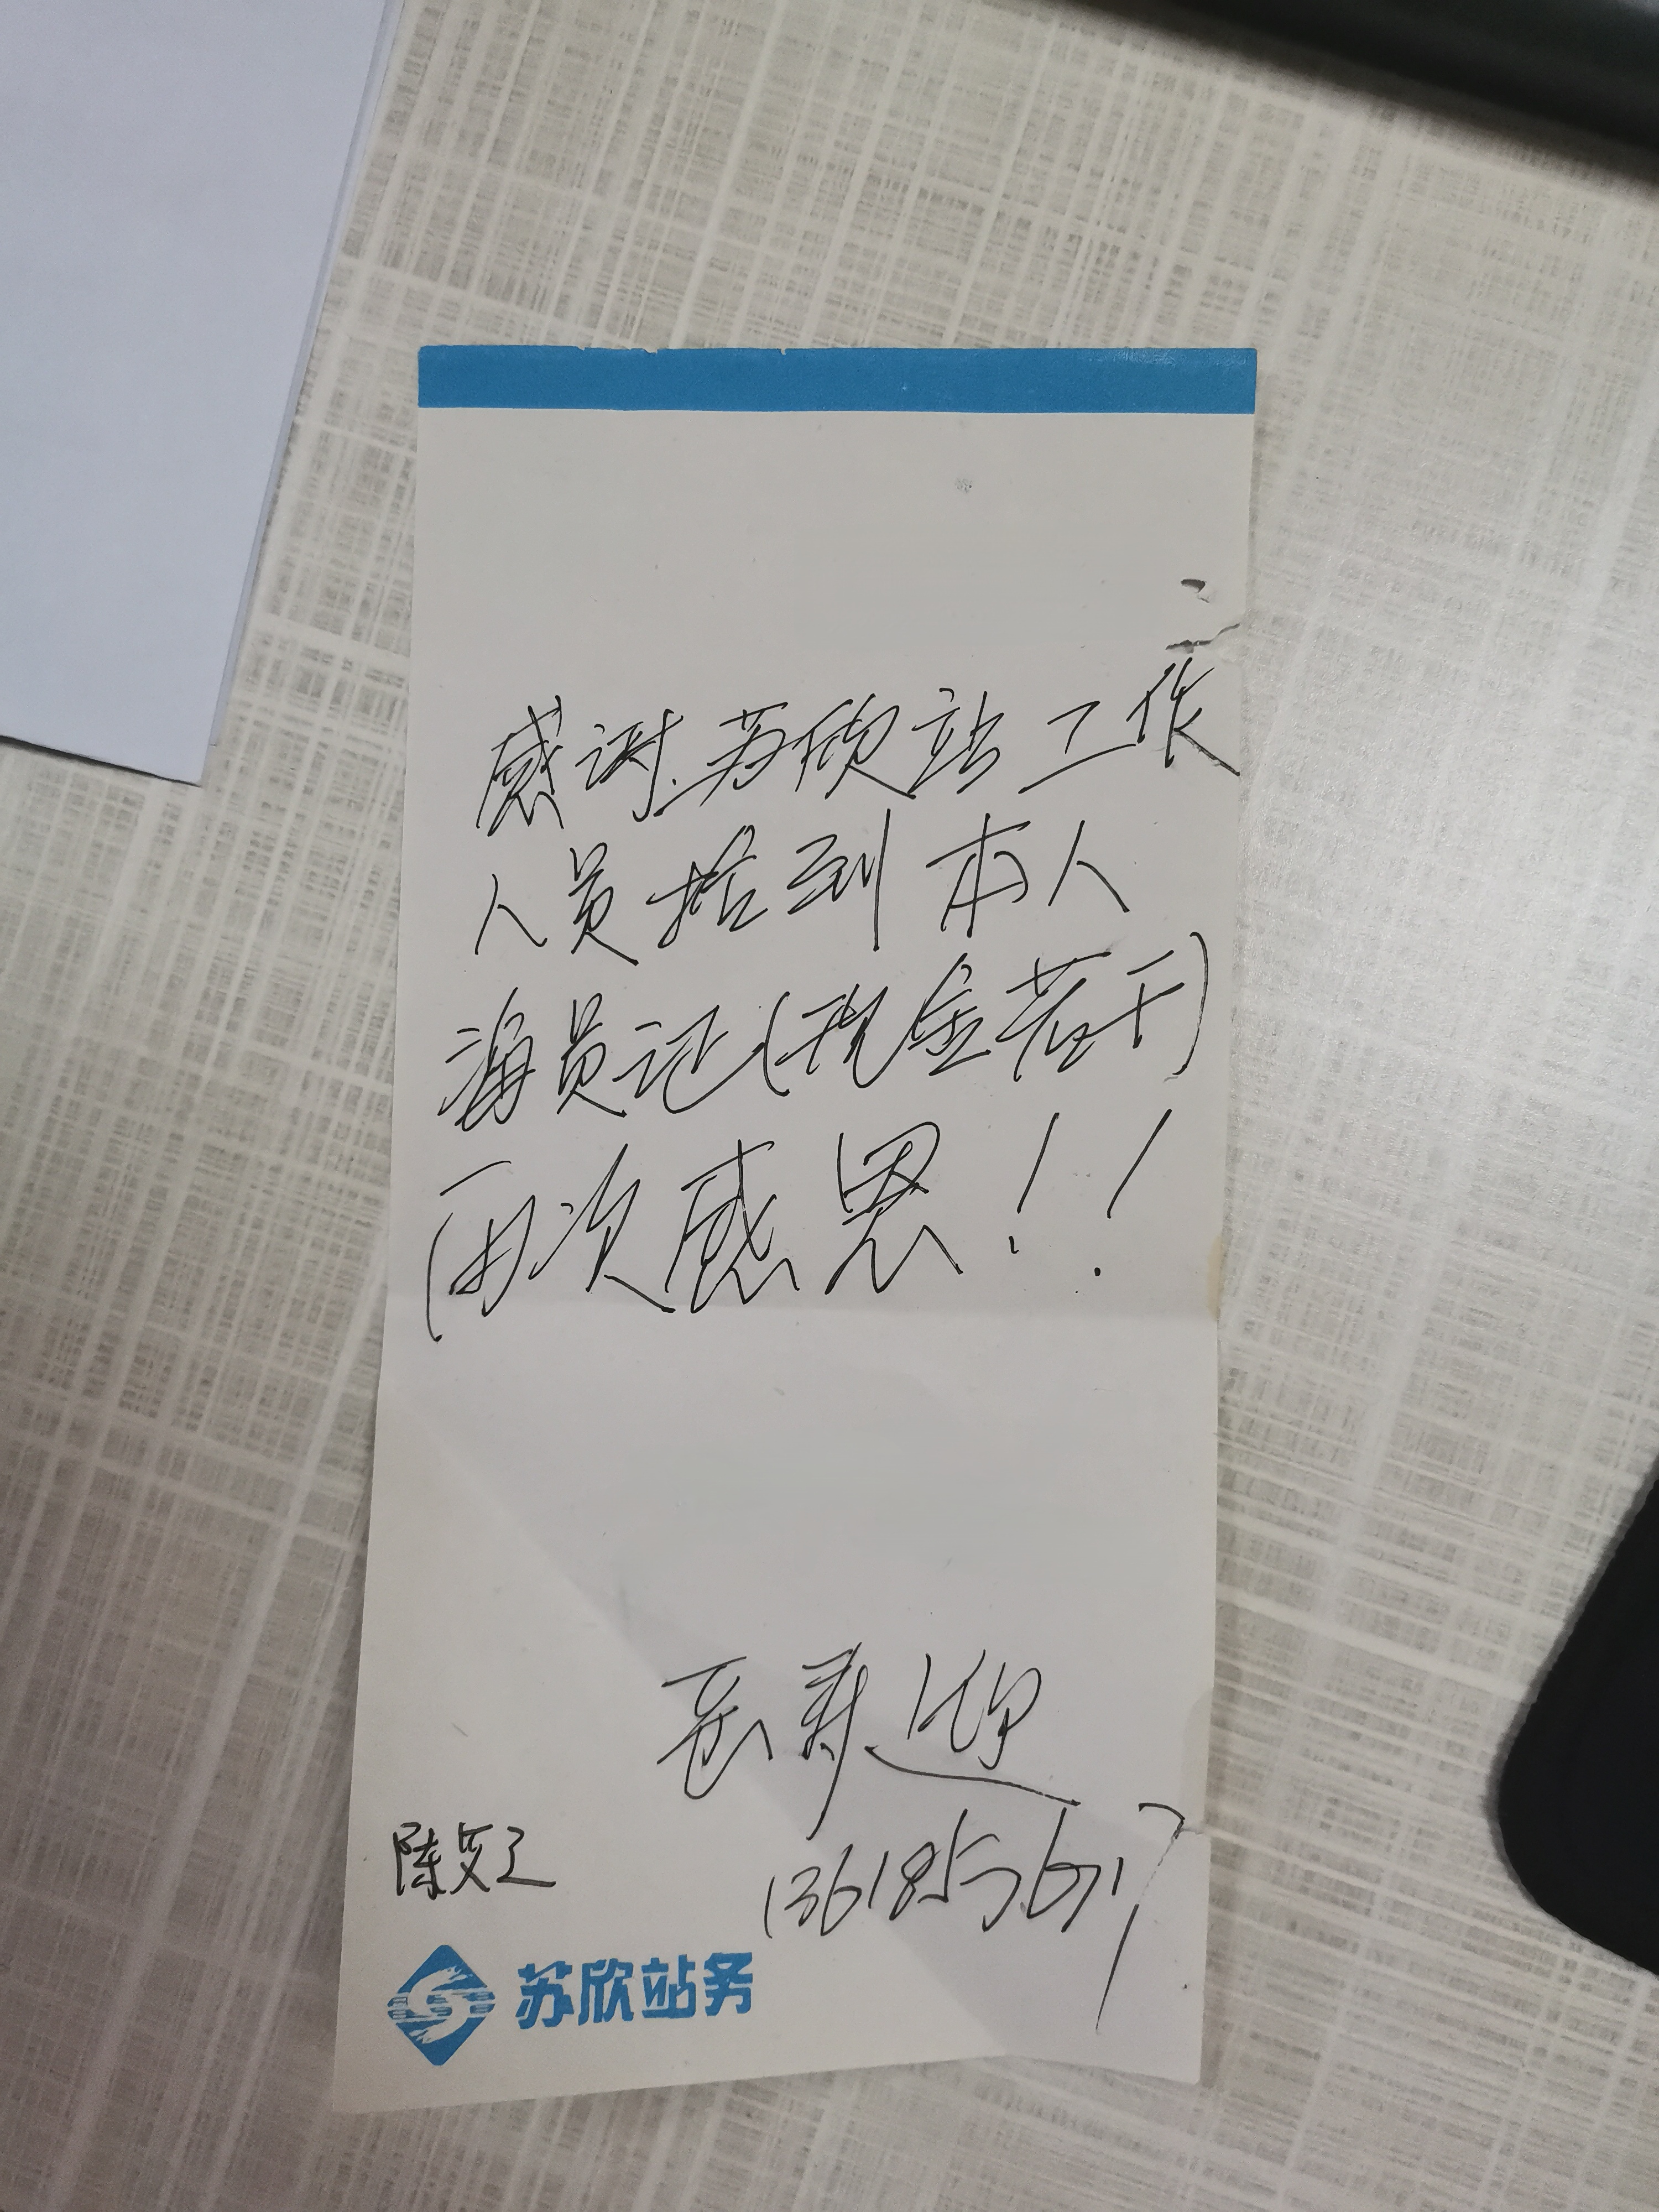 感谢苏欣站工作
人员拾到本人
海员记(现金若干)
再次感恩!!
陈艾之
苏欣站务